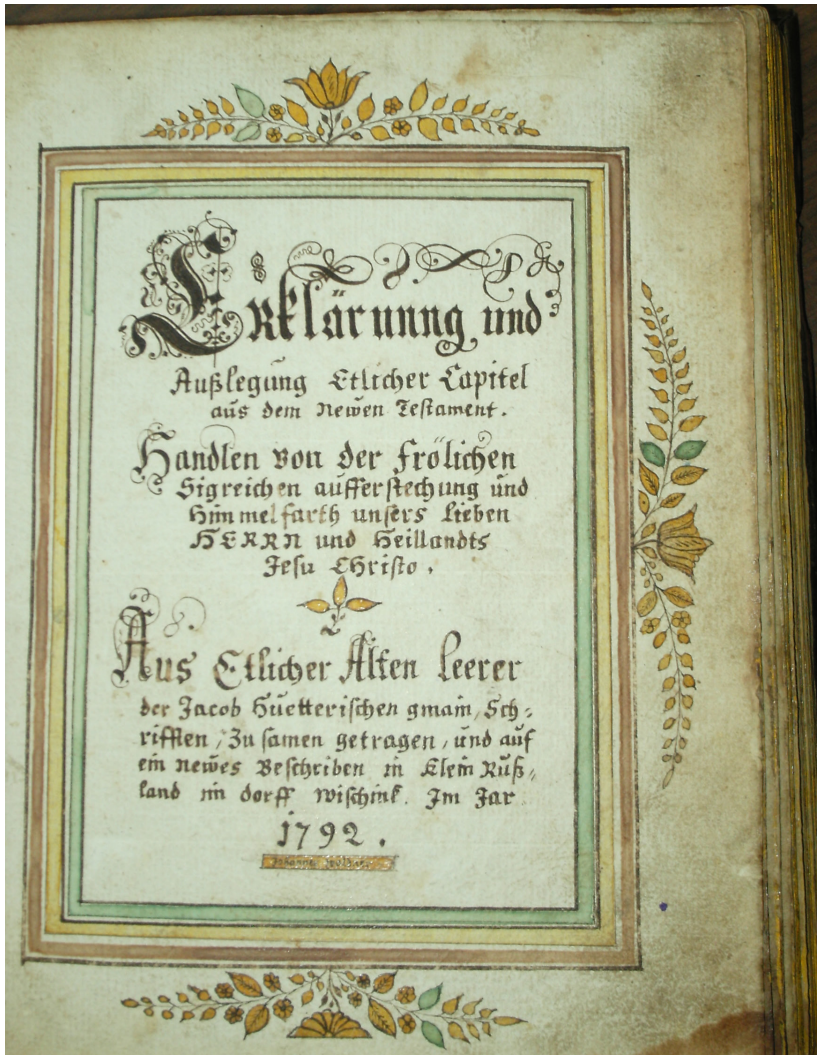 Erklärunng und
Außlegung Etlicher Capitel
aus dem Newen Testament.
Handlen von der frölichen
Sigreichen aufferstechung und
Himmelfarth unsers lieben
HERRN und Heillandts
Jesu CHristo.
Aus Etlicher Alten leerer
der Jacob Huetterischen gmain, Sch-
rifften, Zu samen getragen, und auf
ein newes Beschriben in Klein Ruß-
land im dorff wischink. Im Jar
1792.